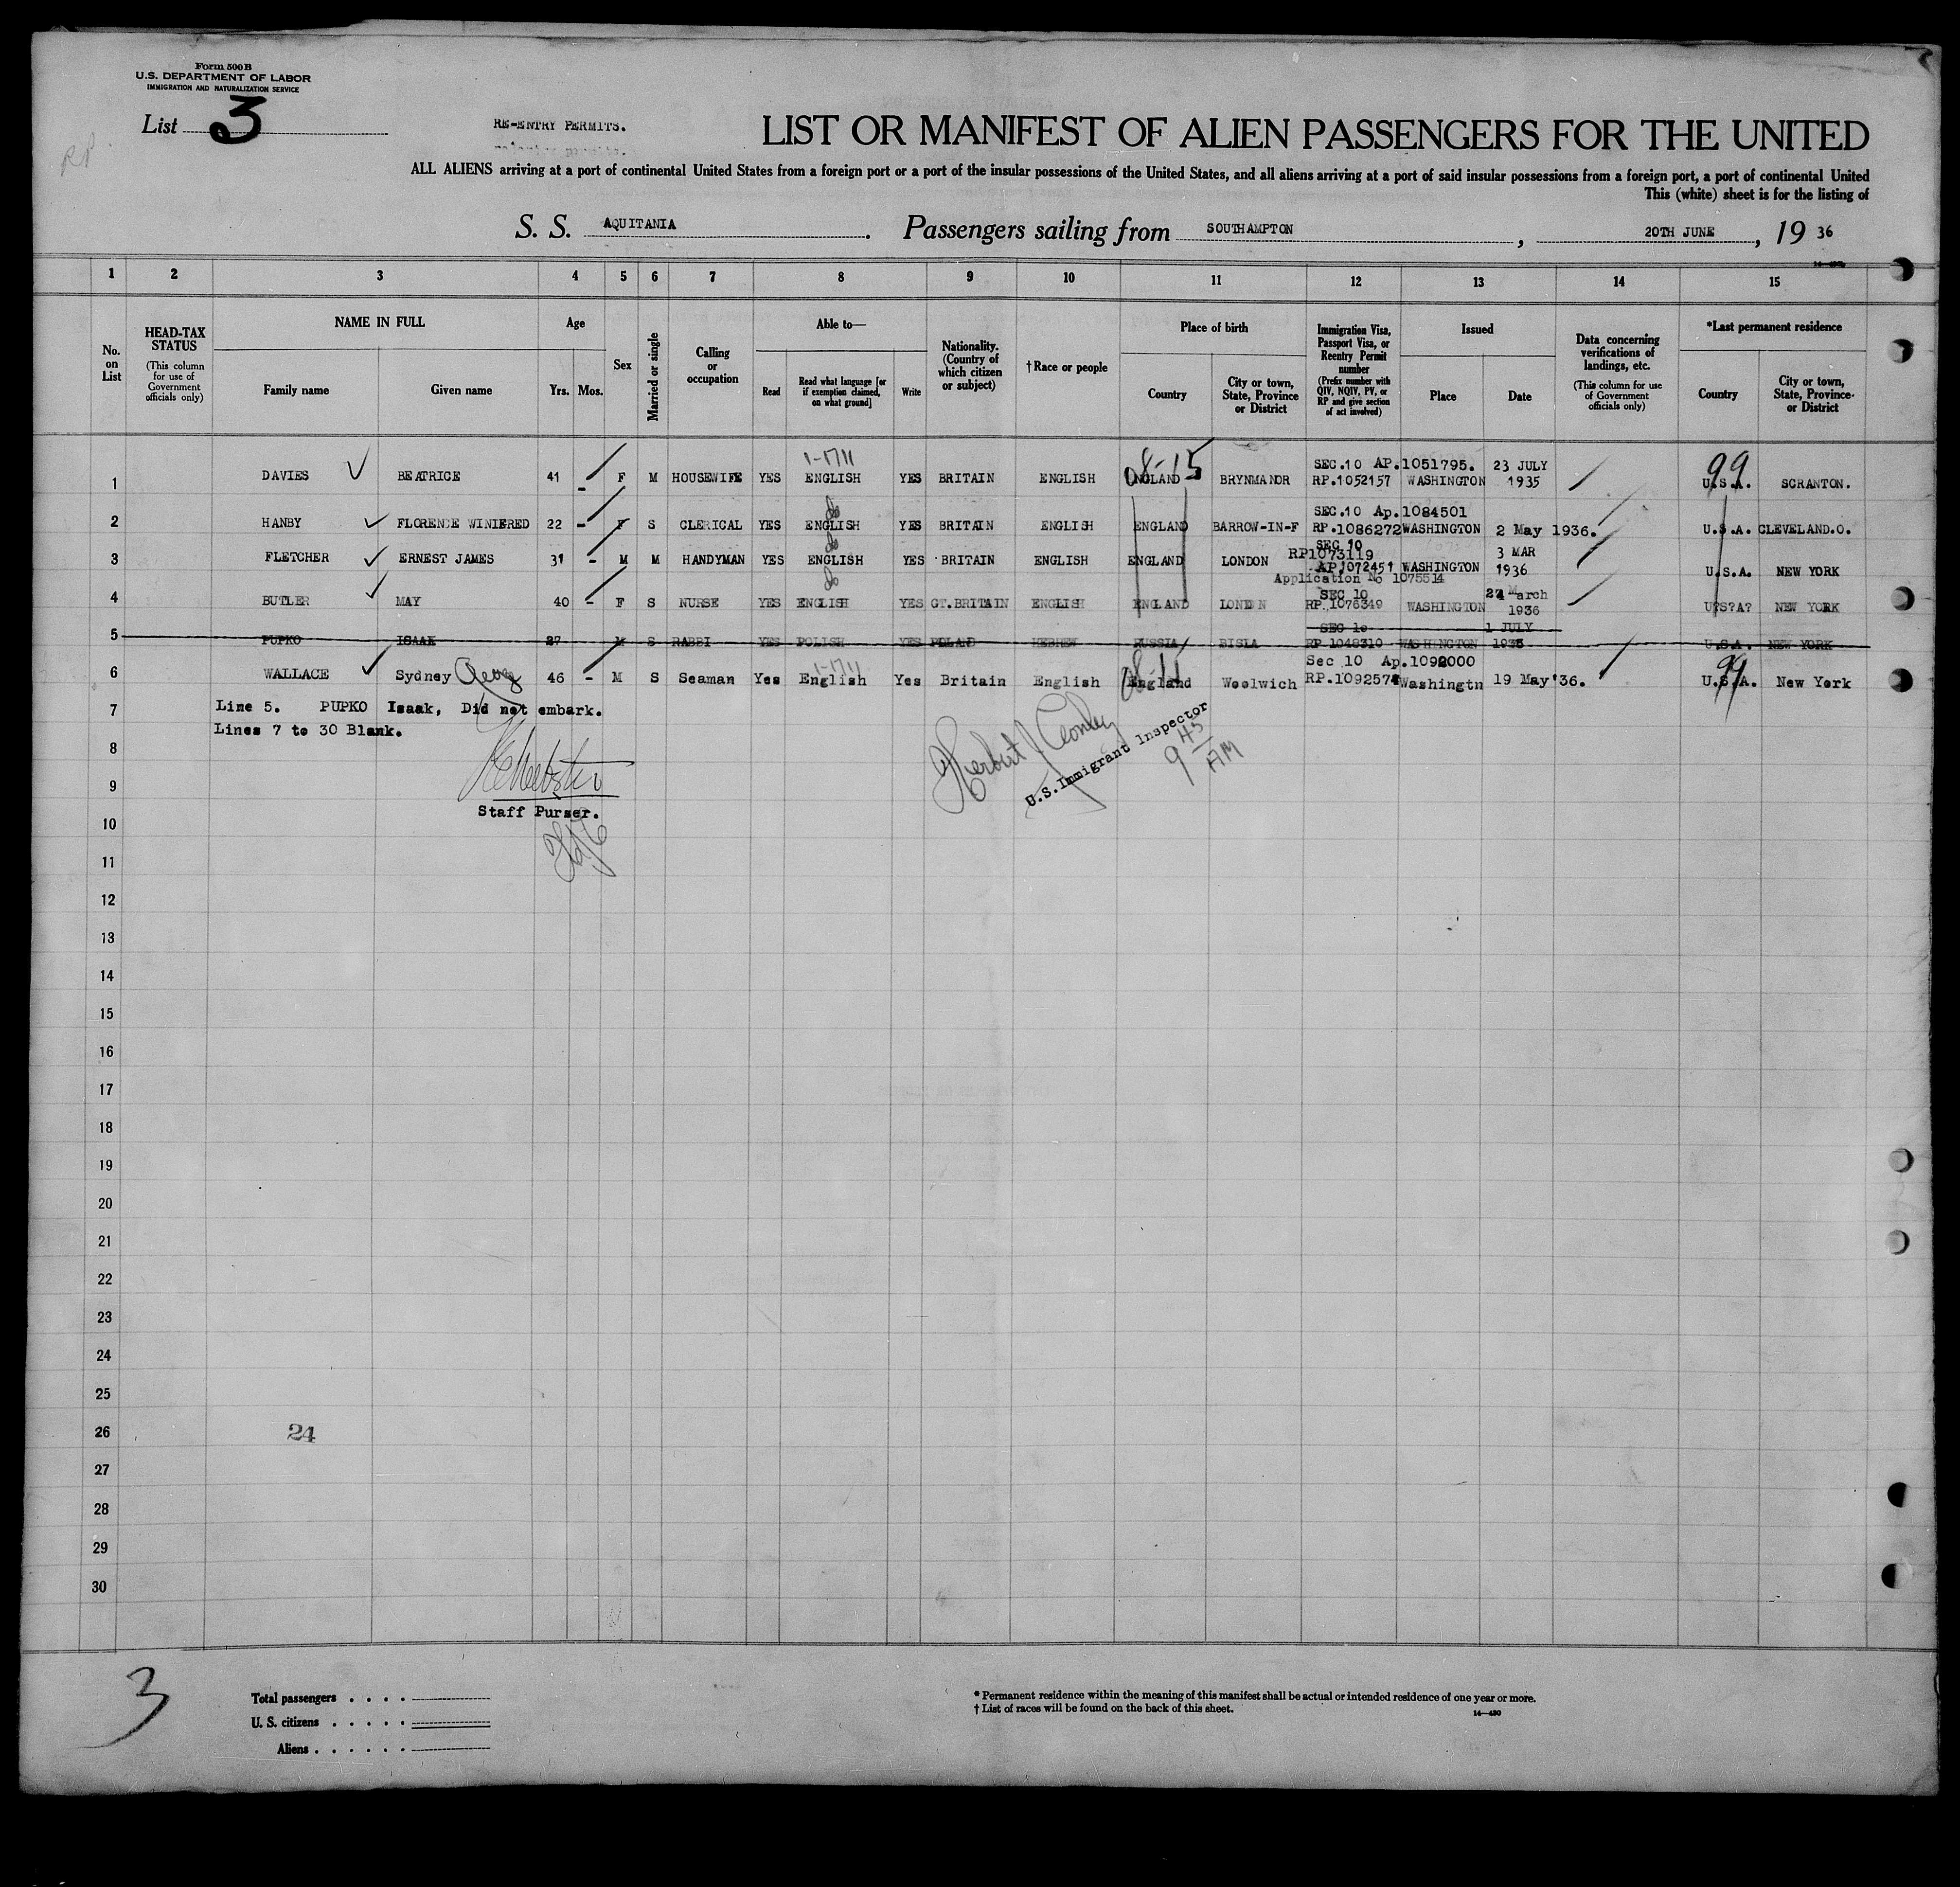 Form 500 B
U.S. DEPARTMENT OF LABOR
IMMIGRATION AND NATURALIZATION SERVICE
List 3
RE-ENTRY PERMITS.
RP
LIST OR MANIFEST OF ALIEN PASSENGERS FOR THE UNITED
ALL ALIENS arriving at a port of continental United States from a foreign port or a port of the insular possessions of the United States, and all aliens arriving at a port of said insular possessions from a foreign port, a port of continental United
This (white) sheet is for the listing of
S. S. AQUITANIA. Passengers sailing from SOUTHAMPTON, 20TH JUNE, 19 36
1 2 3 4 5 6 7 8 9 10 11 12 13 14 15
No. on List
HEAD-TAX STATUS (This column for use of Government officials only)
NAME IN FULL
Family name Given name
Age
Yrs. Mos.
Sex
Married or single
Calling or occupation
Able to—
Read Read what language [or if exemption claimed, on what ground] Write
Nationality. (Country of which citizen or subject)
† Race or people
Place of birth
Country City or town, State, Province or District
Immigration Visa, Passport Visa, or Reentry Permit number (Prefix number with QIV, NQIV, PV, or RP and give section of act involved)
Issued
Place Date
Data concerning verifications of landings, etc. (This column for use of Government officials only)
*Last permanent residence
Country City or town, State, Province or District
1-1711 08-15 SEC.10 AP.1051795. 23 JULY 99
1 DAVIES BEATRICE 41 - F M HOUSEWIFE YES ENGLISH YES BRITAIN ENGLISH ENGLAND BRYNMANDR RP.1052157 WASHINGTON 1935 U.S.A. SCRANTON.
do SEC.10 Ap.1084501
2 HANBY FLORENCE WINIFRED 22 - F S CLERICAL YES ENGLISH YES BRITAIN ENGLISH ENGLAND BARROW-IN-F RP.1086272 WASHINGTON 2 May 1936. U.S.A. CLEVELAND.O.
do SEC 10 RP1073119 3 MAR
3 FLETCHER ERNEST JAMES 31 - M M HANDYMAN YES ENGLISH YES BRITAIN ENGLISH ENGLAND LONDON AP.1072451 WASHINGTON 1936 U.S.A. NEW YORK
do Application No 1075514
SEC 10 24 March
4 BUTLER MAY 40 - F S NURSE YES ENGLISH YES GT.BRITAIN ENGLISH ENGLAND LONDON RP.1076349 WASHINGTON 1936 U?S?A? NEW YORK
SEC 10 1 JULY
5 PUPKO ISAAK 27 M S RABBI YES POLISH YES POLAND HEBREW RUSSIA BISLA RP 1048310 WASHINGTON 1935 U.S.A. NEW YORK
1-1711 08-11 Sec 10 Ap.1092000 99
6 WALLACE Sydney 46 - M S Seaman Yes English Yes Britain English England Woolwich RP.1092574 Washingtn 19 May '36. U.S.A. New York
7 Line 5. PUPKO Isaak, Did not embark.
Lines 7 to 30 Blank.
8
9
Staff Purser.
U.S. Immigrant Inspector
9 45 AM
10
11
12
13
14
15
16
17
18
19
20
21
22
23
24
25
26 24
27
28
29
30
3
Total passengers . . . .
U. S. citizens . . . . .
Aliens . . . . . .
* Permanent residence within the meaning of this manifest shall be actual or intended residence of one year or more.
† List of races will be found on the back of this sheet.
14—430